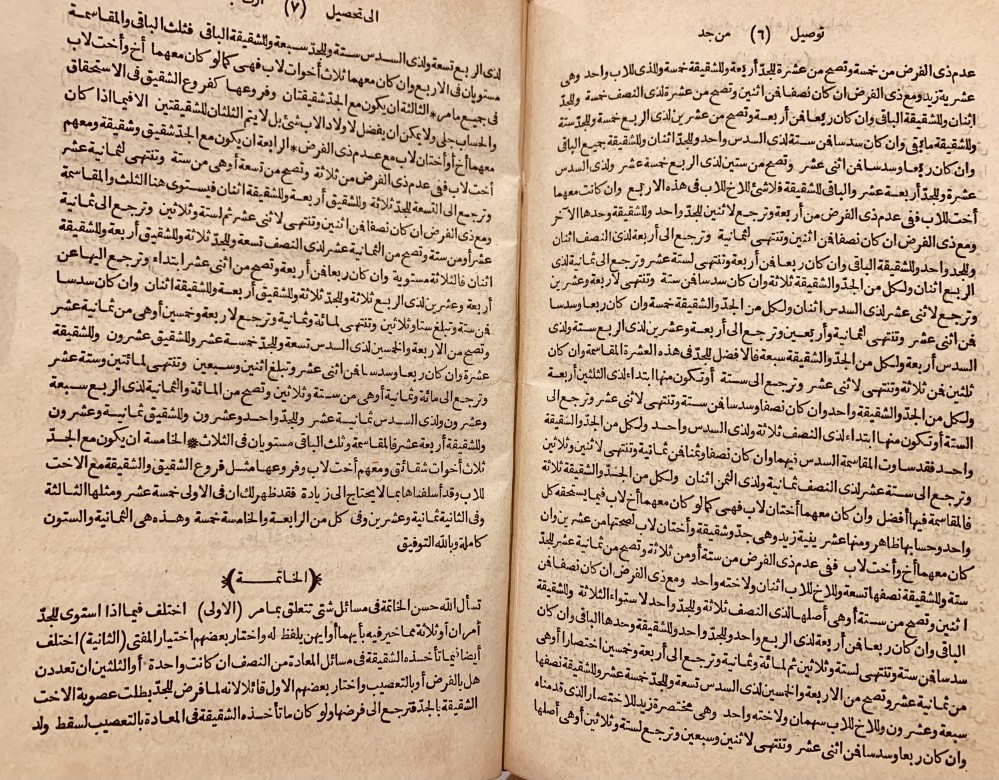 توصيل (٦) من جد
عدم ذى الفرض من خمسة وتصح من عشرة للجد أربعة وللشقيقة خمسة والذى للاب واحد وهى
عشرية زيد ومع ذى الفرض ان كان نصفا فن اثنين وتصح من عشرة لذى النصف خمسة وللجد
اثنان وللشقيقة الباقى وان كان ربعا فن أربعة وتصح من عشرين لذى الربع خمسة وللجد ستة
وللشقيقة مابقى وان كان سدسا فن ستة لذى السدس واحد وللجد اثنان وللشقيقة جميع الباقى
وان كان ربعا وسدسا فن اثنى عشر وتصح من ستين لذى الربع خمسة عشر ولذى السدس
عشرة وللجد أربعة عشر والباقى للشقيقة فلاشئ للاخ للاب فى هذه الاربع وان كانت معهما
أخت للاب ففى عدم ذى الفرض من أربعة وترجع لاثنين للجد واحد وللشقيقة وحدها الآخر
ومع ذى الفرض ان كان نصفا فن اثنين وتنتهى لثمانية وترجع الى أربعة لذى النصف اثنان
وللجد واحد وللشقيقة الباقى وان كان ربعا فن أربعة وتنتهى لستة عشر وترجع الى ثمانية لذى
الربع اثنان ولكل من الجد والشقيقة ثلاثة وان كان سدسا فن ستة وتنتهى لاربعة وعشرين
وترجع لاثنى عشر لذى السدس اثنان ولكل من الجد والشقيقة خمسة وان كان ربعا وسدسا
فن اثنى عشر وتنتهى لثمانية وأربعين وترجع الى أربعة وعشرين لذى الربع ستة ولذى
السدس أربعة ولكل من الجد والشقيقة سبعة فالافضل للجد فى هذه العشرة المقاسمة وان كان
ثلثين فن ثلاثة وتنتهى لاثنى عشر وترجع الى ستة أو تكون منها ابتداء لذى الثلثين أربعة
ولكل من الجد والشقيقة واحد وان كان نصفا وسدسا فن ستة وتنتهى لاثنى عشر وترجع الى
الستة أو تكون منها ابتداء لذى النصف ثلاثة ولذى السدس واحد ولكل من الجد والشقيقة
واحد فقد ساوت المقاسمة السدس فيهما وان كان نصفا وثمنا فن ثمانية وتنتهى لاثنين وثلاثين
وترجع الى ستة عشر لذى النصف ثمانية ولذى الثمن اثنان ولكل من الجد والشقيقة ثلاثة
فالمقاسمة فيها أفضل وان كان معهما أختان لاب فهى كما لو كان معهما أخ لاب فيما يستحقه كل
واحد وحسابها ظاهر ومنها عشرينية زيد وهى جد وشقيقة وأختان لاب لصحتها من عشرين وان
كان معهما أخ وأخت لاب ففى عدم ذى الفرض من ستة أو من ثلاثة وتصح من ثمانية عشر للجد
ستة وللشقيقة نصفها تسعة وللاخ للاب اثنان ولاخته واحد ومع ذى الفرض ان كان نصفا فن
اثنين وتصح من ستة أو هى أصلها لذى النصف ثلاثة وللجد واحد لاستواء الثلاثة وللشقيقة
الباقى وان كان ربعا فن أربعة لذى الربع واحد وللجد واحد وللشقيقة وحدها الباقى وان كان
سدسا فن ستة وتنتهى لستة وثلاثين ثم لمائة وثمانية وترجع الى أربعة وخمسين اختصارا أو هى
من ثمانية عشر وتصح من الاربعة والخمسين لذى السدس تسعة وللجد خمسة عشر وللشقيقة نصفها
سبعة وعشرون وللاخ للاب سهمان ولاخته واحد وهى مختصرة زيد للاختصار الذى قدمناه
وان كان ربعا وسدسا فن اثنى عشر وتنتهى لاثنين وسبعين وترجع لستة وثلاثين أو هى أصلها
الى تحصيل (٧)
لذى الربع تسعة ولذى السدس ستة وللجد سبعة وللشقيقة الباقى فثلث الباقى والمقاسمة
مستويان فى الاربع وان كان معهما ثلاث أخوات لاب فهى كما لو كان معهما أخ وأخت لاب
فى جميع مامر * الثالثة ان يكون مع الجد شقيقتان وفروعها كفروع الشقيق فى الاستحقاق
والحساب جلى ولا يمكن ان يفضل لاولاد الاب شئ بل لا يتم الثلثان للشقيقتين الا فيما اذا كان
معهما أخ أو أختان لاب مع عدم ذى الفرض * الرابعة ان يكون مع الجد شقيق وشقيقة ومعهم
أخت لاب ففى عدم ذى الفرض من ثلاثة وتصح من تسعة أو هى من ستة وتنتهى لثمانية عشر
وترجع الى التسعة للجد ثلاثة وللشقيق أربعة وللشقيقة اثنان فيستوى هنا الثلث والمقاسمة
ومع ذى الفرض ان كان نصفا فن اثنين وتنتهى لاثنى عشر ثم لستة وثلاثين وترجع الى ثمانية
عشر أو من ستة وتصح من الثمانية عشر لذى النصف تسعة وللجد ثلاثة وللشقيق أربعة وللشقيقة
اثنان فالثلاثة مستوية وان كان ربعا فن أربعة وتصح من اثنى عشر ابتداء وترجع اليها عن
أربعة وعشرين لذى الربع ثلاثة وللجد ثلاثة وللشقيق أربعة وللشقيقة اثنان وان كان سدسا
فن ستة وتبلغ ستا وثلاثين وتنتهى لمائة وثمانية وترجع لاربعة وخمسين أو هى من ثمانية عشر
وتصح من الاربعة والخمسين لذى السدس تسعة وللجد خمسة عشر وللشقيق عشرون وللشقيقة
عشرة وان كان ربعا وسدسا فن اثنى عشر وتبلغ اثنين وسبعين وتنتهى لمائتين وستة عشر
وترجع الى مائة وثمانية أو هى من ستة وثلاثين وتصح من المائة والثمانية لذى الربع سبعة
وعشرون ولذى السدس ثمانية عشر وللجد واحد وعشرون وللشقيق ثمانية وعشرون
وللشقيقة أربعة عشر فالمقاسمة وثلث الباقى مستويان فى الثلاث * الخامسة ان يكون مع الجد
ثلاث أخوات شقائق ومعهم أخت لاب وفروعها مثل فروع الشقيق والشقيقة مع الاخت
للاب وقد أسلفناها بما لا يحتاج الى زيادة فقد ظهر لك ان فى الاولى خمسة عشر ومثلها الثالثة
وفى الثانية ثمانية وعشرين وفى كل من الرابعة والخامسة خمسة وهذه هى الثمانية والستون
كاملة وبالله التوفيق
*(الخاتمة)*
نسأل الله حسن الخاتمة فى مسائل شتى تتعلق بما مر (الاولى) اختلف فيما اذا استوى للجد
أمران أو ثلاثة مما خير فيه بأيهما أو أيهن يلفظ له واختار بعضهم اختيار المفتى (الثانية) اختلف
أيضا فيما تأخذه الشقيقة فى مسائل المعادة من النصف ان كانت واحدة * أو الثلثين ان تعددن
هل بالفرض أو بالتعصيب واختار بعضهم الاول قائلا لانه لما فرض للجد بطلت عصوبة الاخت
الشقيقة بالجد فترجع الى فرضها ولو كان ما تأخذه الشقيقة فى المعادة بالتعصيب لسقط ولد